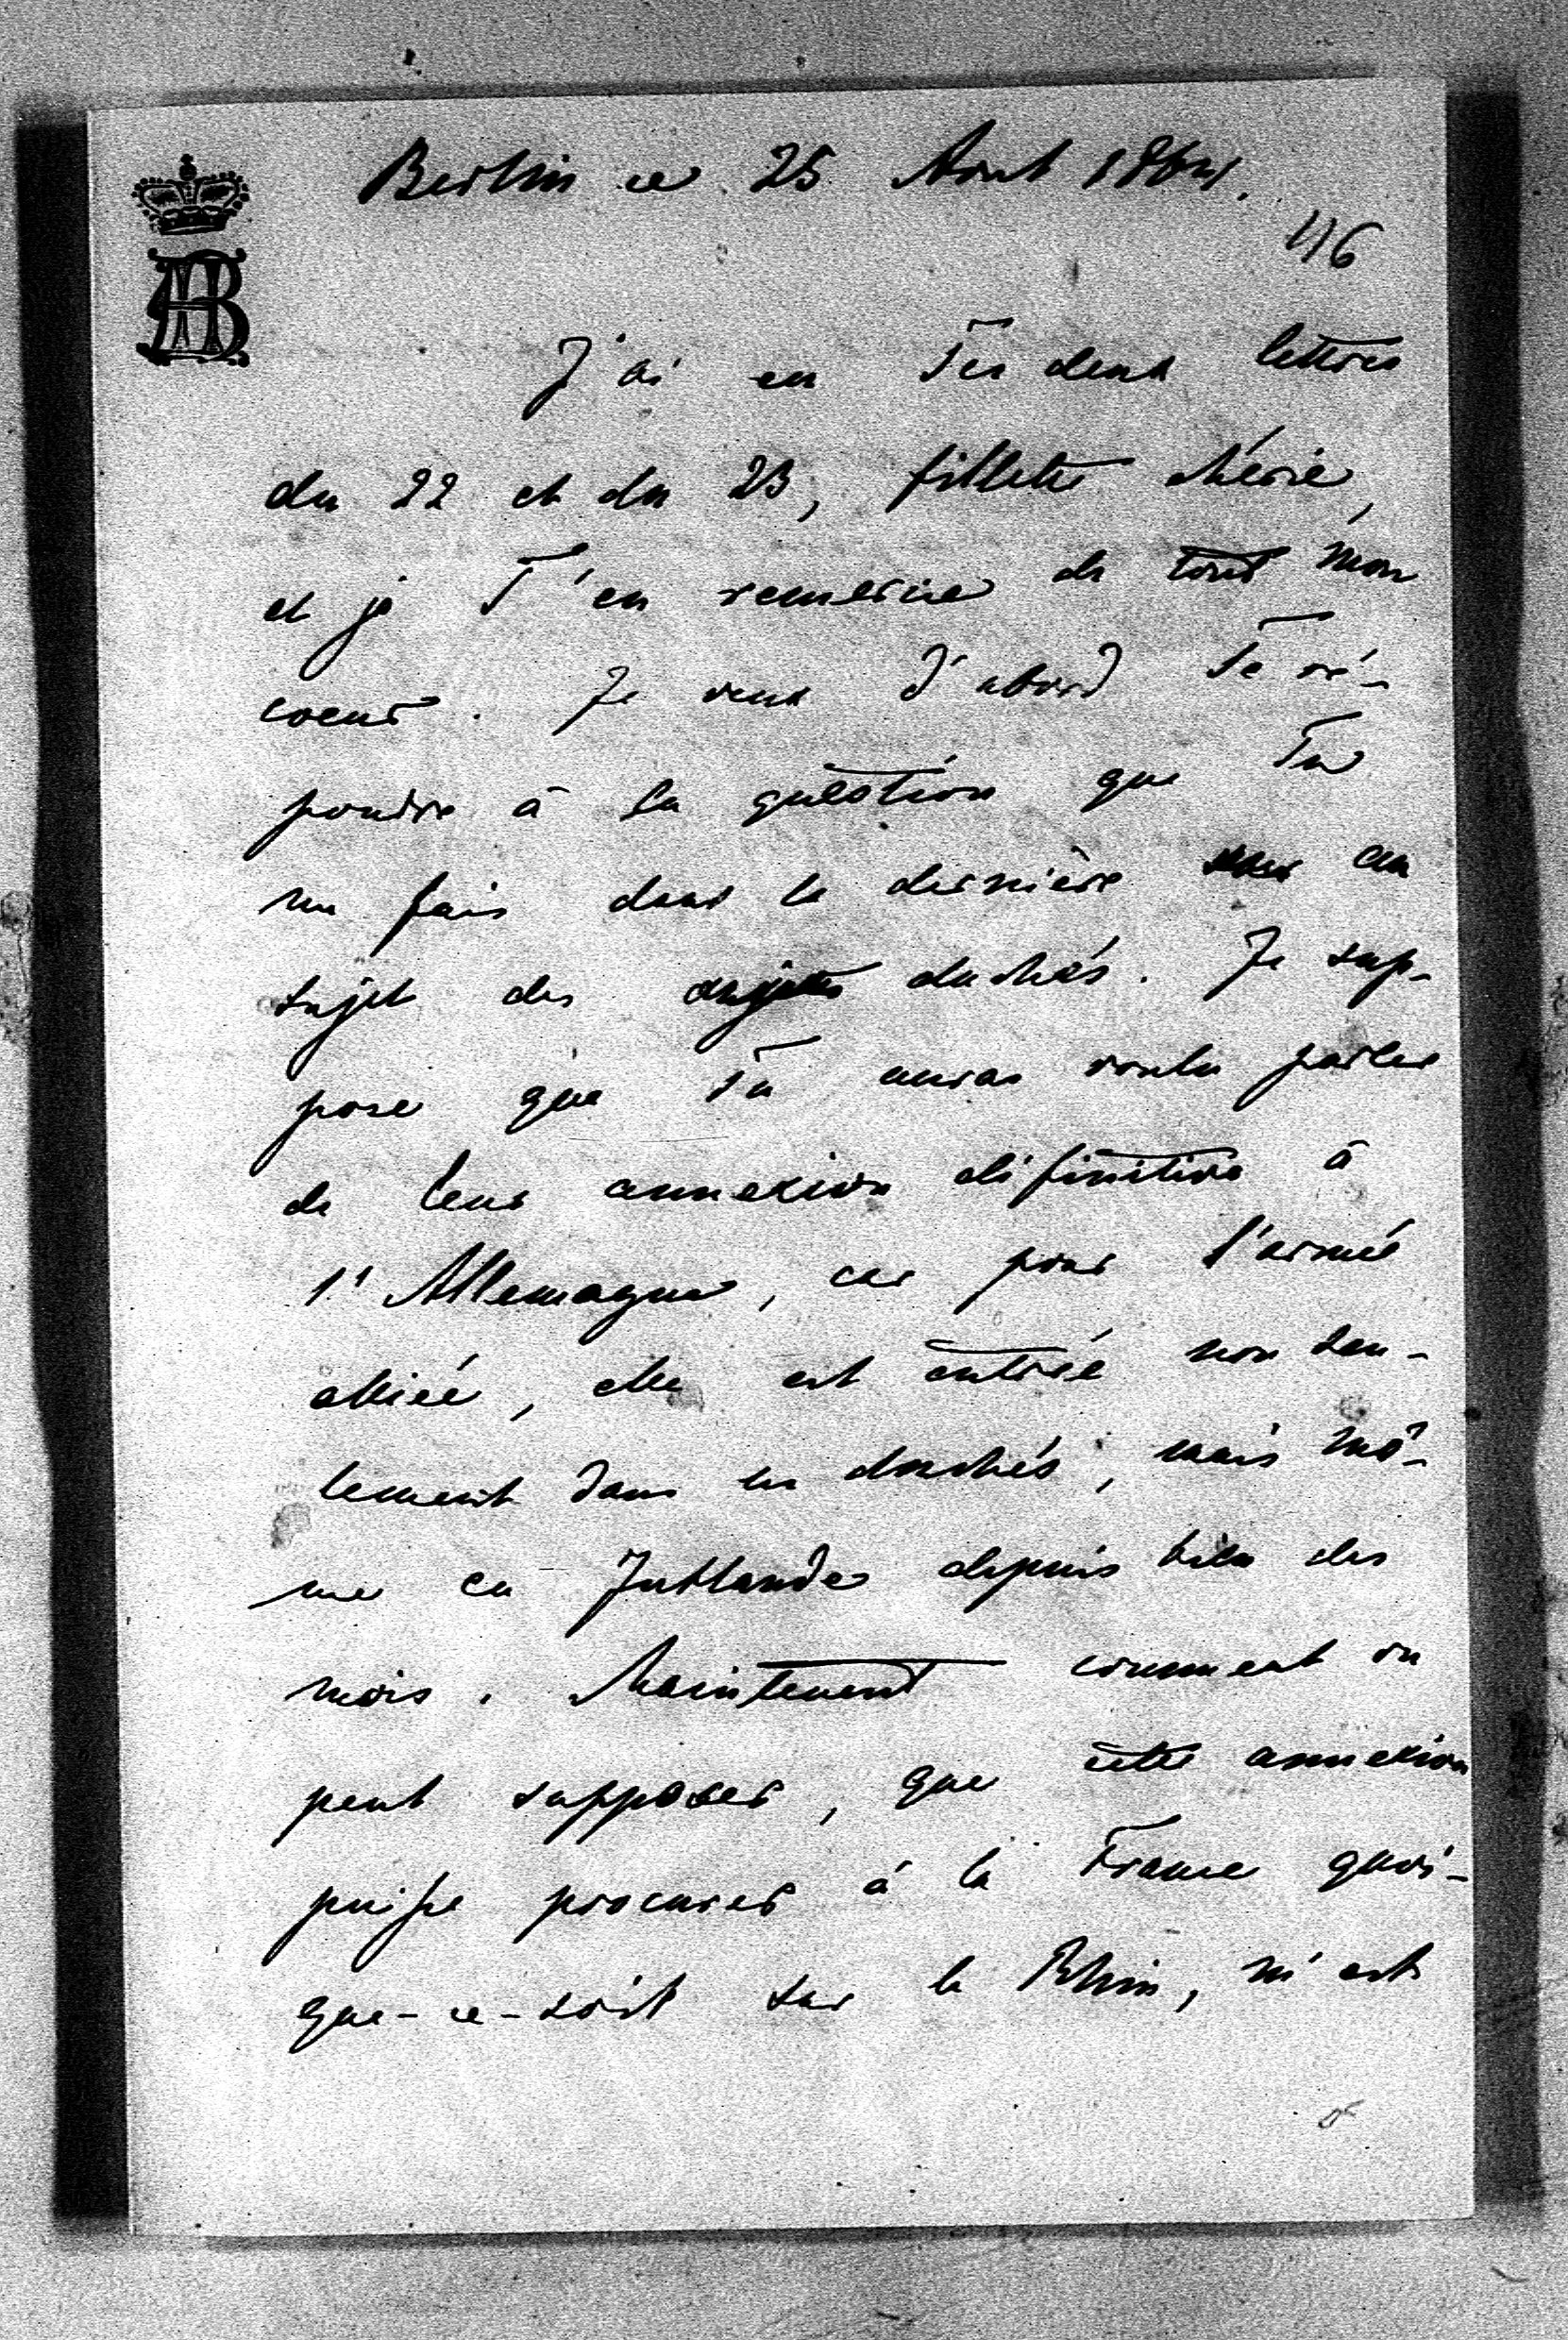 Berlin ce 25 Aout 1864.
116
J'ai eu Tes deux lettres
du 22 et du 23, fillette chérie,
et je T'en remercie de tout mon
coeur. Je veux d'abord Te ré-
pondre à la question que Tu
me fais dans la dernière au
sujet des duchés. Je sup-
pose que Tu auras voulu parler
de leur annexion définitive à
l'Allemagne, car pour l'armée
alliée, elle est entrée non seu-
lement dans les duchés, mais mê-
me en Jutlande depuis bien des
mois. Maintenent comment on
peut supposer, que cette annexion
puisse procurer à la France quoi-
que-ce-soit sur le Rhin, m'est